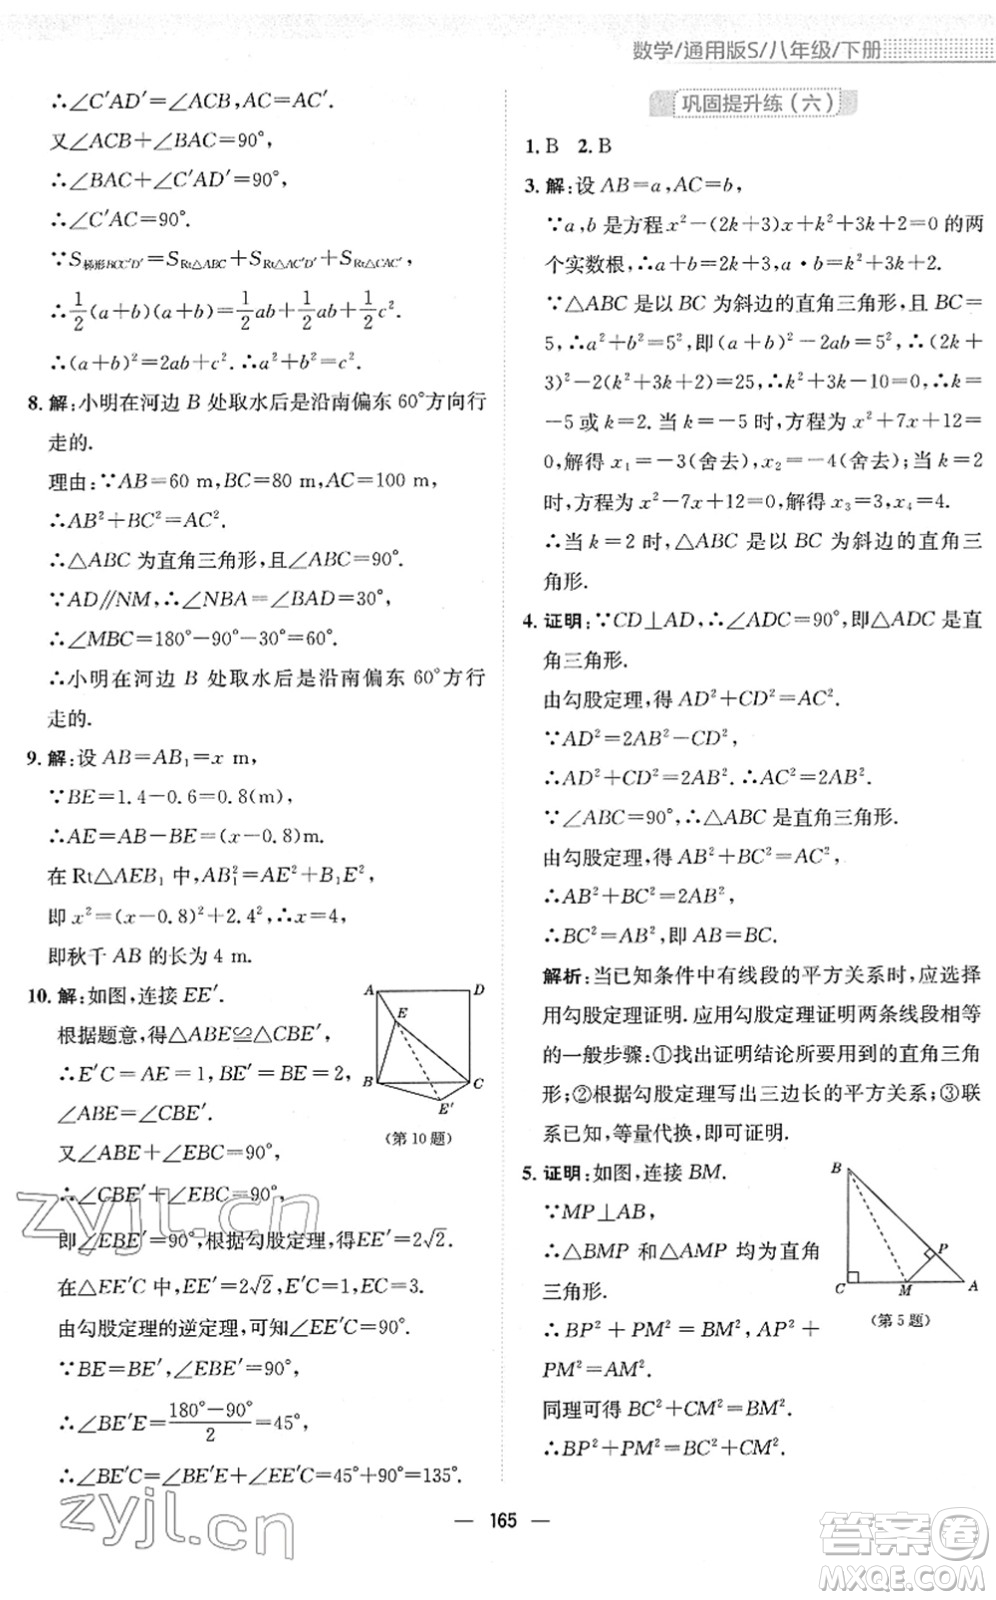 数学/通用版S/八年级/下册
∴∠C′AD′=∠ACB,AC=AC′.
又∠ACB+∠BAC=90°,
∴∠BAC+∠C′AD′=90°,
∴∠C′AC=90°.
∵S梯形BCC′D′=SRt△ABC+SRt△AC′D′+SRt△CAC′,
∴1/2(a+b)(a+b)=1/2ab+1/2ab+1/2c².
∴(a+b)²=2ab+c². ∴a²+b²=c².
8. 解:小明在河边 B 处取水后是沿南偏东 60°方向行
走的.
理由:∵AB=60 m,BC=80 m,AC=100 m,
∴AB²+BC²=AC².
∴△ABC 为直角三角形,且∠ABC=90°.
∵AD//NM,∴∠NBA=∠BAD=30°,
∴∠MBC=180°-90°-30°=60°.
∴小明在河边 B 处取水后是沿南偏东 60°方行
走的.
9. 解:设 AB=AB₁=x m,
∵BE=1.4-0.6=0.8(m),
∴AE=AB-BE=(x-0.8)m.
在 Rt△AEB₁ 中,AB₁²=AE²+B₁E²,
即 x²=(x-0.8)²+2.4²,∴x=4,
即秋千 AB 的长为 4 m.
10. 解:如图,连接 EE′.
根据题意,得△ABE≌△CBE′,
∴E′C=AE=1,BE′=BE=2,
∠ABE=∠CBE′.
又∵∠ABE+∠EBC=90°,
∴∠CBE′+∠EBC=90°,
即∠EBE′=90°,根据勾股定理,得EE′=2√2.
在△EE′C 中,EE′=2√2,E′C=1,EC=3,
由勾股定理的逆定理,可知∠EE′C=90°.
∵BE=BE′,∠EBE′=90°,
∴∠BE′E=(180°-90°)/2=45°,
∴∠BE′C=∠BE′E+∠EE′C=45°+90°=135°.
A
D
E
B
C
E′
(第 10 题)
巩固提升练(六)
1. B 2. B
3. 解:设 AB=a,AC=b,
∵a,b 是方程 x²-(2k+3)x+k²+3k+2=0 的两
个实数根,∴a+b=2k+3,a·b=k²+3k+2.
∵△ABC 是以 BC 为斜边的直角三角形,且 BC=
5,∴a²+b²=5²,即(a+b)²-2ab=5²,∴(2k+
3)²-2(k²+3k+2)=25,∴k²+3k-10=0,∴k=
-5 或 k=2. 当 k=-5 时,方程为 x²+7x+12=
0,解得 x₁=-3(舍去),x₂=-4(舍去);当 k=2
时,方程为 x²-7x+12=0,解得 x₃=3,x₄=4.
∴当 k=2 时,△ABC 是以 BC 为斜边的直角三
角形.
4. 证明:∵CD⊥AD,∴∠ADC=90°,即△ADC 是直
角三角形.
由勾股定理,得 AD²+CD²=AC².
∵AD²=2AB²-CD²,
∴AD²+CD²=2AB². ∴AC²=2AB².
∵∠ABC=90°,∴△ABC 是直角三角形.
由勾股定理,得 AB²+BC²=AC²,
∴AB²+BC²=2AB²,
∴BC²=AB²,即 AB=BC.
解析:当已知条件中有线段的平方关系时,应选择
用勾股定理证明. 应用勾股定理证明两条线段相等
的一般步骤:①找出证明结论所要用到的直角三角
形;②根据勾股定理写出三边长的平方关系;③联
系已知,等量代换,即可证明.
5. 证明:如图,连接 BM.
∵MP⊥AB,
∴△BMP 和△AMP 均为直角
三角形.
∴BP²+PM²=BM²,AP²+
PM²=AM².
同理可得 BC²+CM²=BM².
∴BP²+PM²=BC²+CM².
B
P
C
M
A
(第 5 题)
— 165 —
zyjl.cn
zyjl.cn
答案卷
MXQE.COM